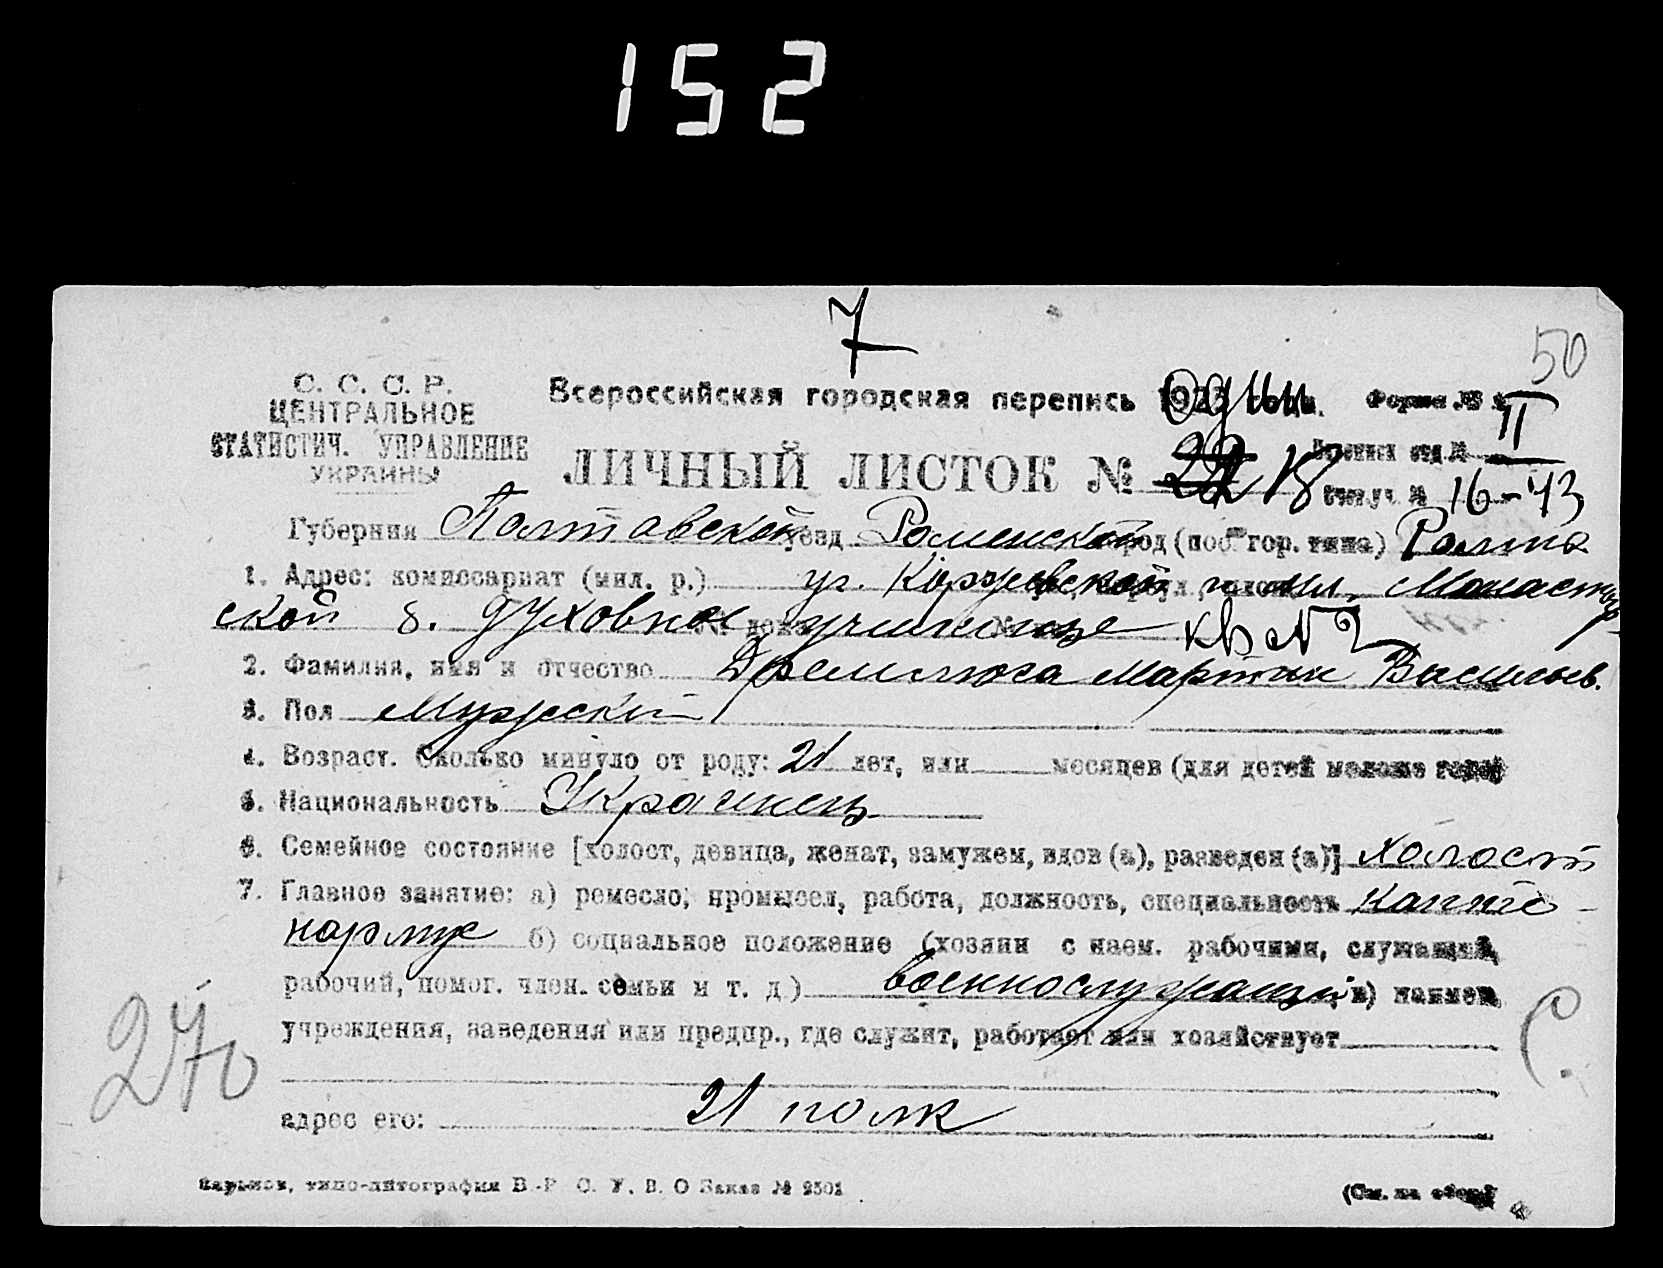 152
7
50
С. С. С. Р.
ЦЕНТРАЛЬНОЕ
СТАТИСТИЧ. УПРАВЛЕНИЕ
УКРАИНЫ
Всероссийская городская перепись 1923 года. Форма № II
ЛИЧНЫЙ ЛИСТОК № 22 18
Счетн. уч. № 16-43
Губерния Полтавской уезд Роменской город (пос. гор. типа) Ромна
1. Адрес: комиссариат (мил. р.) уг. Коржевской и ул. Монастыр
ской б. Духовное училище кв № 2
2. Фамилия, имя и отчество Дремлюга Мартин Васильев.
3. Пол Мужеский
4. Возраст. Сколько минуло от роду: 21 лет, или месяцев (для детей моложе года)
5. Национальность Украинец
6. Семейное состояние [холост, девица, женат, замужем, вдов (а), разведен (а)] холост
7. Главное занятие: а) ремесло, промысел, работа, должность, специальность Каптe-
нармус б) социальное положение (хозяин с наем. рабочими, служащий,
рабочий, помог. член. семьи и т. д.) военнослужащий в) наимен.
учреждения, заведения или предпр., где служит, работает или хозяйствует
адрес его: 21 полк
С.
Харьков, типо-литография В.-Р. С. У. В. О Заказ № 2501
(См. на обор.)